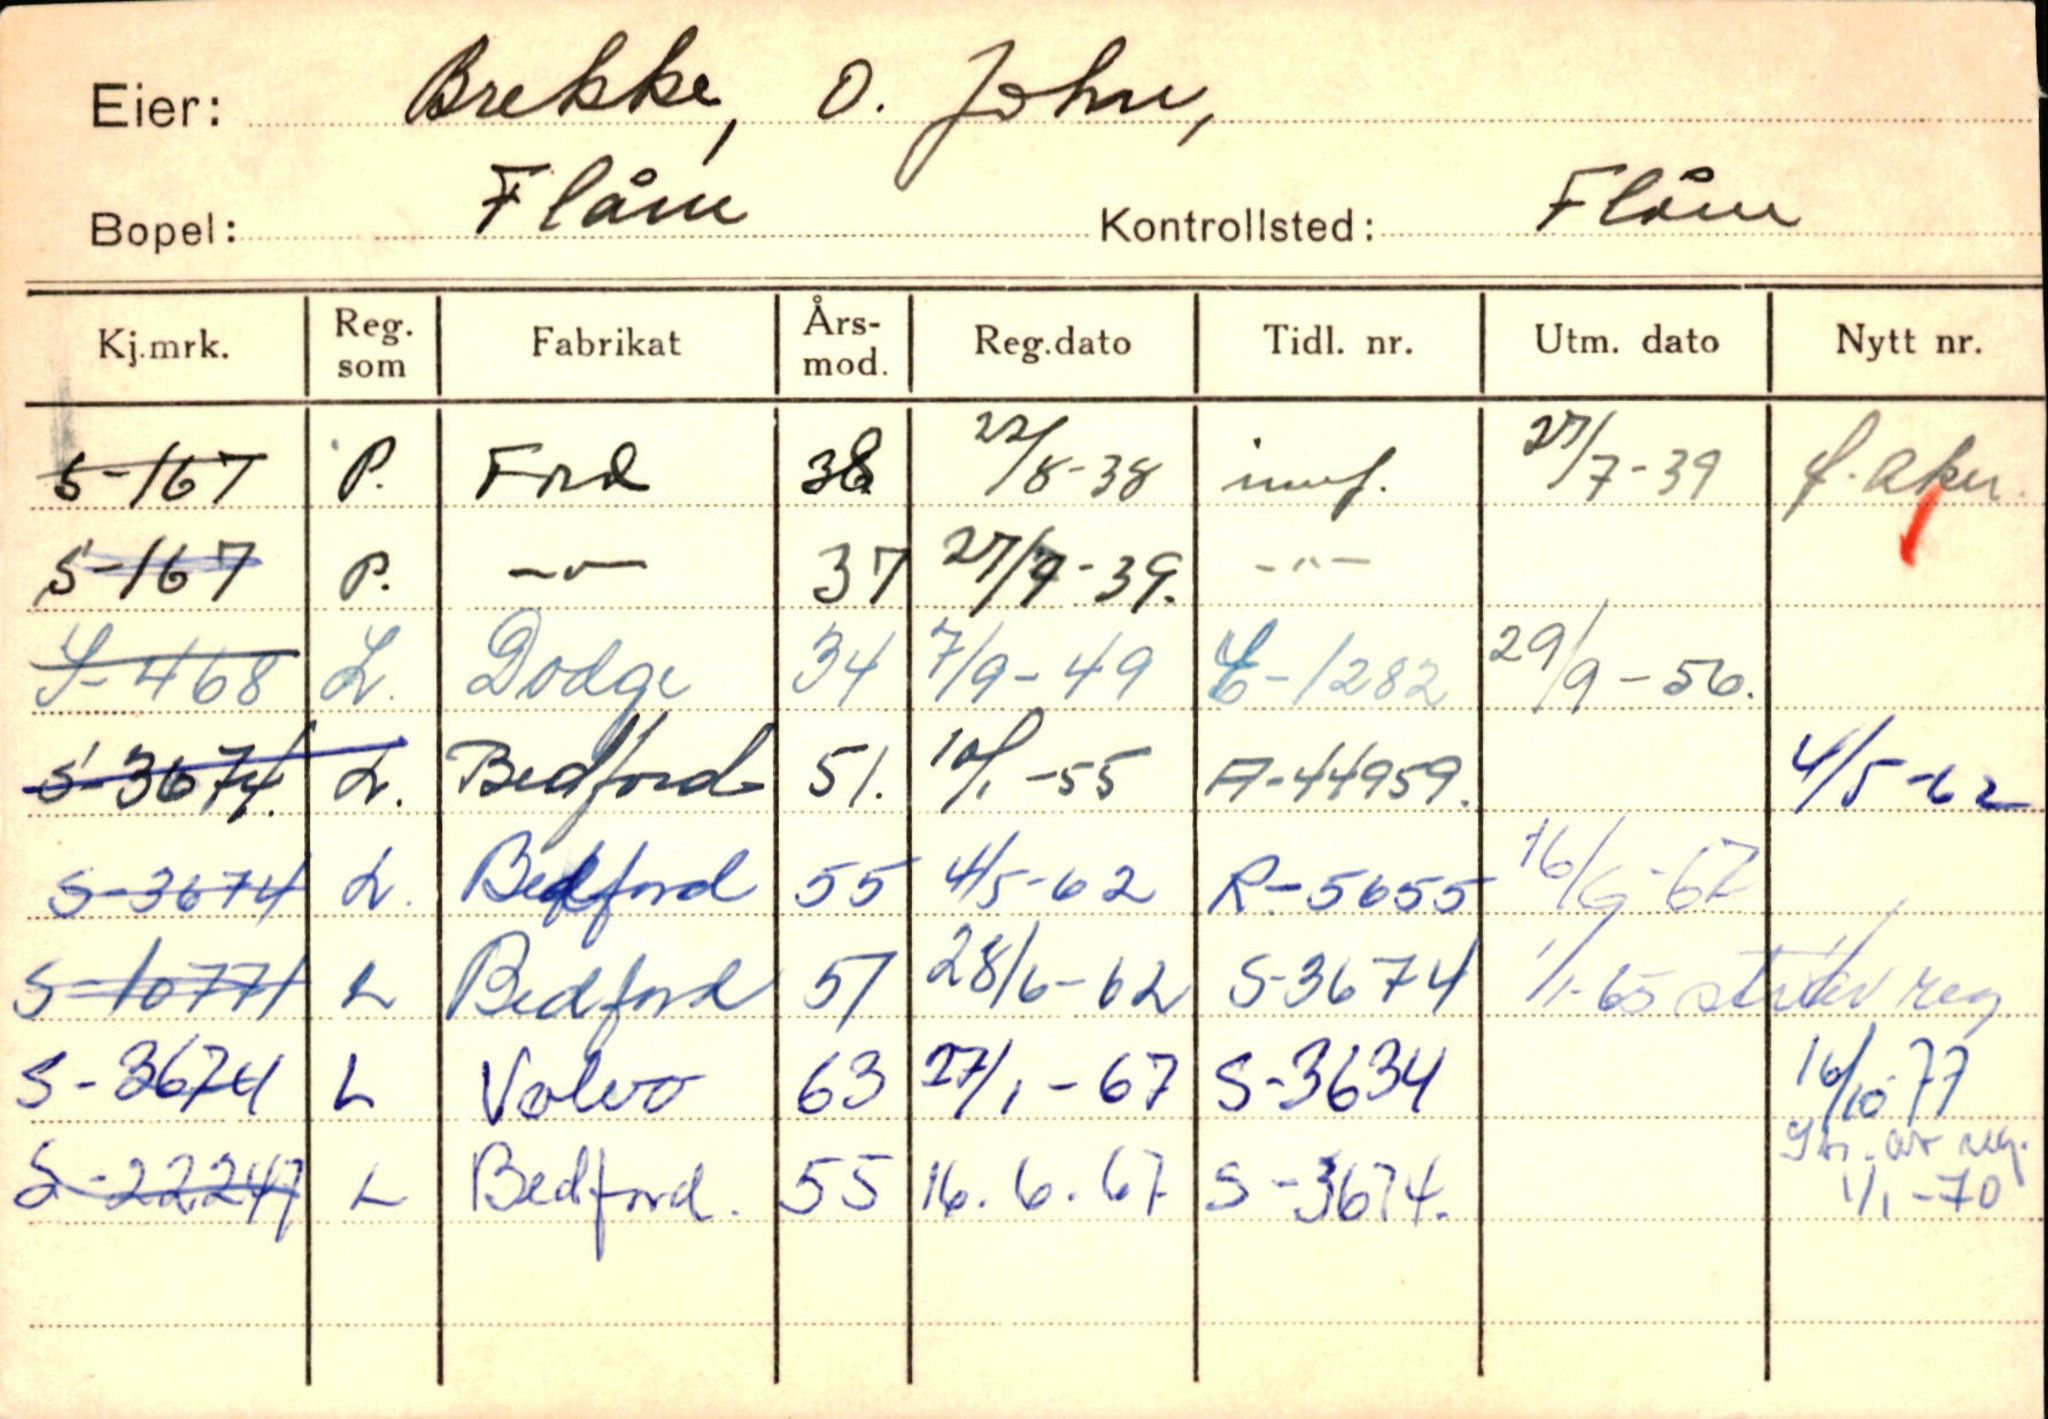 Eier: Brekke, O. John,
Bopel: Flåm Kontrollsted: Flåm
Kj.mrk. Reg. som Fabrikat Års-mod. Reg.dato Tidl. nr. Utm. dato Nytt nr.
S-167 P. Ford 38 22/8-38 27/7-39 f. Aker.
S-167 P. -"- 37 27/9-39. -"-
S-468 L. Dodge 34 7/9-49 E-1282 29/9-56.
S-3674 L. Bedford 51. 10/1-55 A-44959. 4/5-62
S-3674 L. Bedford 55 4/5-62 R-5655 16/6-67
S-10771 L Bedford 51 28/6-62 S-3674 1/1-65 reg
S-3674 L Volvo 63 27/1-67 S-3634 16/10-77
S-22247 L Bedford. 55 16.6.67 S-3674. av reg. 1/1-70